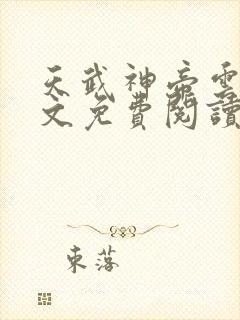 天武神帝雲
文免費閱讀
東落